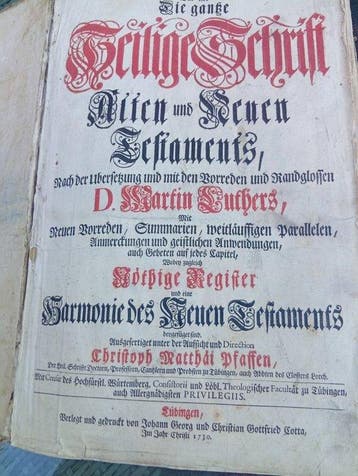 Die gantze
Heilige Schrift
Alten und Neuen
Testaments,
Nach der Ubersetzung und mit den Vorreden und Randglossen
D. Martin Luthers,
Mit
Neuen Vorreden, Summarien, weitläuffigen Parallelen,
Anmerckungen und geistlichen Anwendungen,
auch Gebeten auf jedes Capitel,
Wobey zugleich
Nöthige Register
und eine
Harmonie des Neuen Testaments
beygefüget sind.
Ausgefertiget unter der Aufsicht und Direction
Christoph Matthäi Pfaffen,
Der Heil. Schrifft Doctorn, Professorn, Cantzlern und Probsten zu Tübingen, auch Abbten des Closters Lorch.
Mit Censur des Hochfürstl. Würtenberg. Consistorii und Löbl. Theologischer Facultät zu Tübingen,
auch Allergnädigsten PRIVILEGIIS.
Tübingen,
Verlegt und gedruckt von Johann Georg und Christian Gottfried Cotta,
Im Jahr Christi 1730.